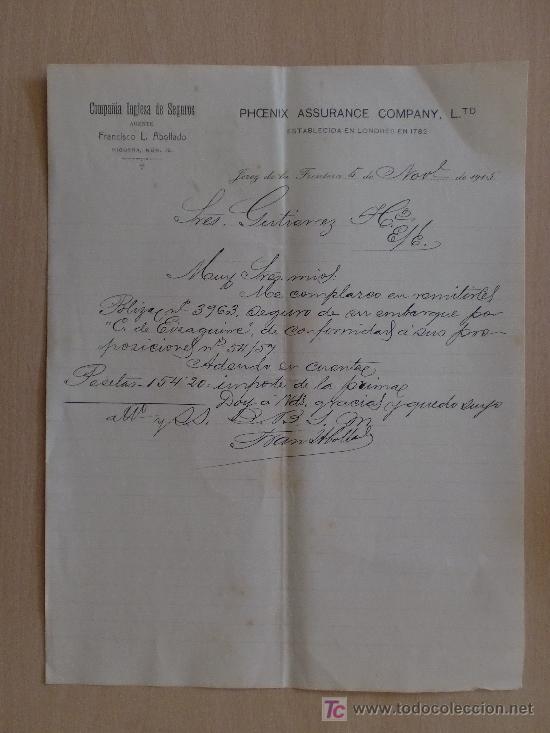 Compañia Inglesa de Seguros
AGENTE
Francisco L. Abollado
HIGUERA, NÚM.
PHŒNIX ASSURANCE COMPANY, L.TD
ESTABLECIDA EN LONDRES EN 1782
Jerez de la Frontera 5 de Novbe de 1915
Sres. Gutierrez Hos
E/C.
Muy Sres. mios:
Me complazco en remitirles
Poliza nº 3963 seguro de su embarque por
"C. de Eizaguirre", de conformidad á sus pro-
posiciones nos 54/57
Adeudo en cuenta
Pesetas 154'20 importe de la prima
Doy á Vds. gracias y quedo suyo
atto y S.S. Q. B. S. M.
Fran Abollado
TC www.todocoleccion.net